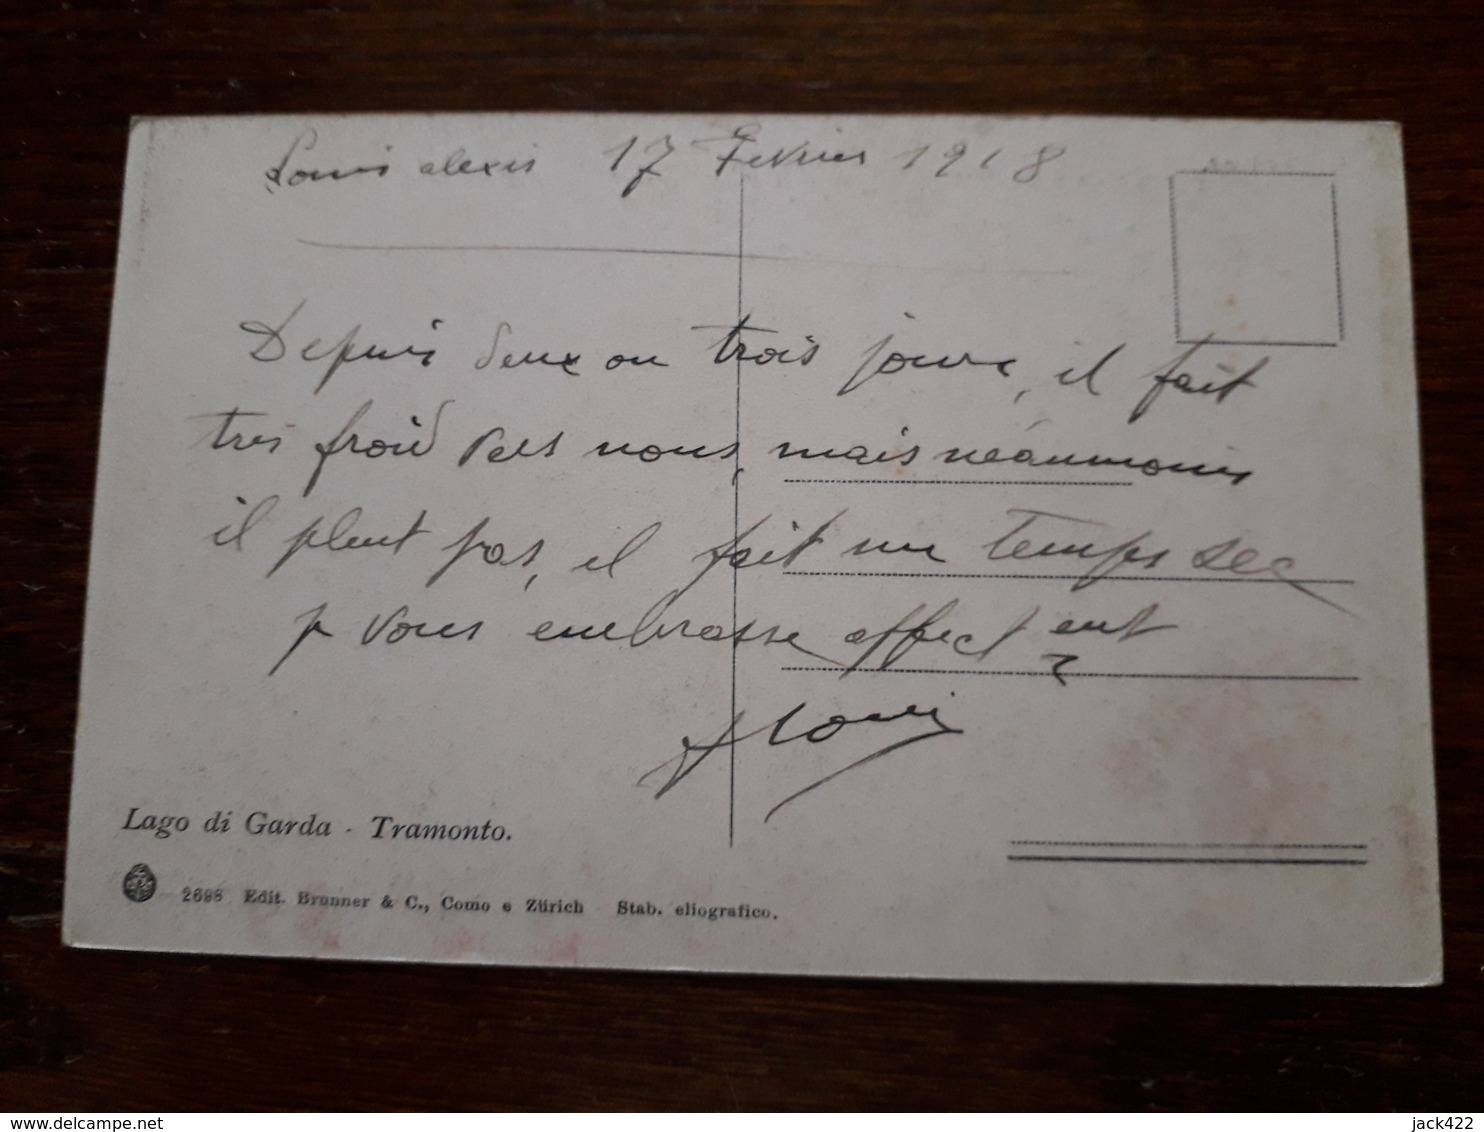 Louis alexis 17 Fevrier 1918
Depuis deux ou trois jours, il fait
tres froid vers nous, mais néaunmoins
il pleut pas, il fait un temps sec
je vous embrasse affect ent
Louis
Lago di Garda - Tramonto.
2698 Edit. Brunner & C., Como e Zürich Stab. eliografico.
delcampe.net
jack422